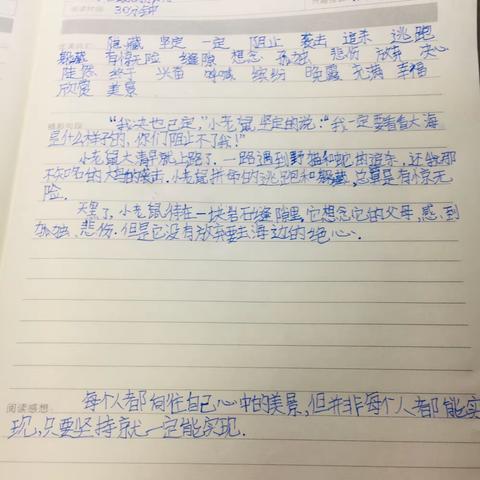 阅读时间: 30分钟
隐藏 坚定 一定 阻止 袭击 追杀 逃跑
躲藏 有惊无险 缝隙 想念 孤独 悲伤 放弃 决心
陡峭 终于 兴奋 呼喊 缤纷 晚霞 充满 幸福
欣赏 美景
精彩句段:
“我决也已定,”小老鼠坚定的说:“我一定要看看大海
是什么样子的,你们阻止不了我!”
小老鼠大清早就上路了.一路遇到野猫和蛇的追杀,还有那
小老鼠拼命的逃跑和躲藏,总算是有惊无
险.
天黑了,小老鼠待在一块岩石缝隙里,它想念它的父母,感到
孤独、悲伤.但是它没有放弃要去海边的绝心.
阅读感想: 每个人都向往自己心中的美景,但并非每个人都能实
现,只要坚持就一定能实现.